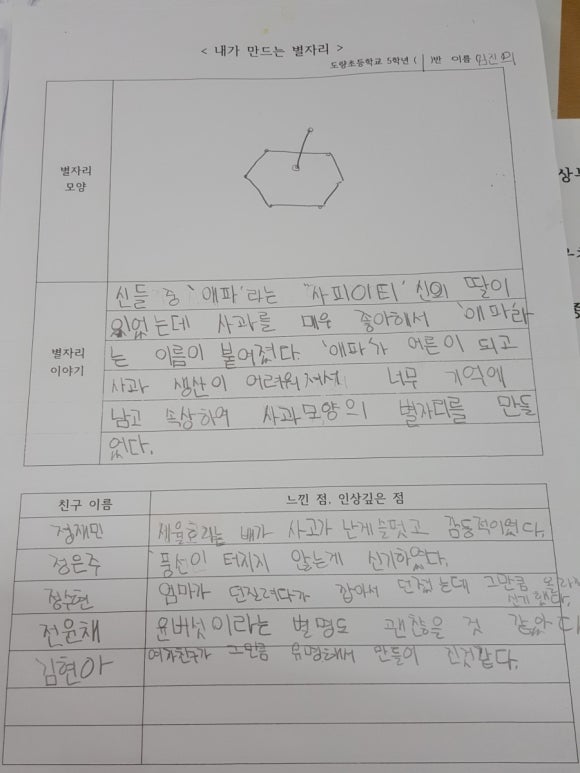 < 내가 만드는 별자리 >
도량초등학교 5학년 ( 1 )반 이름
별자리
모양
신들 중 '애파'라는 "사피이티' 신의 딸이
있었는데 사과를 매우 좋아해서 '애파'라
는 이름이 붙여졌다. '애파'가 어른이 되고
별자리
이야기
사과 생산이 어려워져서 너무 기억에
남고 속상하여 사과모양의 별자리를 만들
었다.
친구 이름
느낀 점, 인상깊은 점
정재민
세월호라는 배가 사고가 난게 슬펐고 감동적이였다.
정은주
풍선이 터지지 않는게 신기하였다.
정수현
엄마가 던질려다가 잡아서 던졌는데 그만큼
신기했다.
전윤채
윤버섯이라는 별명도 괜찮을 것 같았다
김현아
여자친구가 그만큼 유명해서 만들어 진것같다.